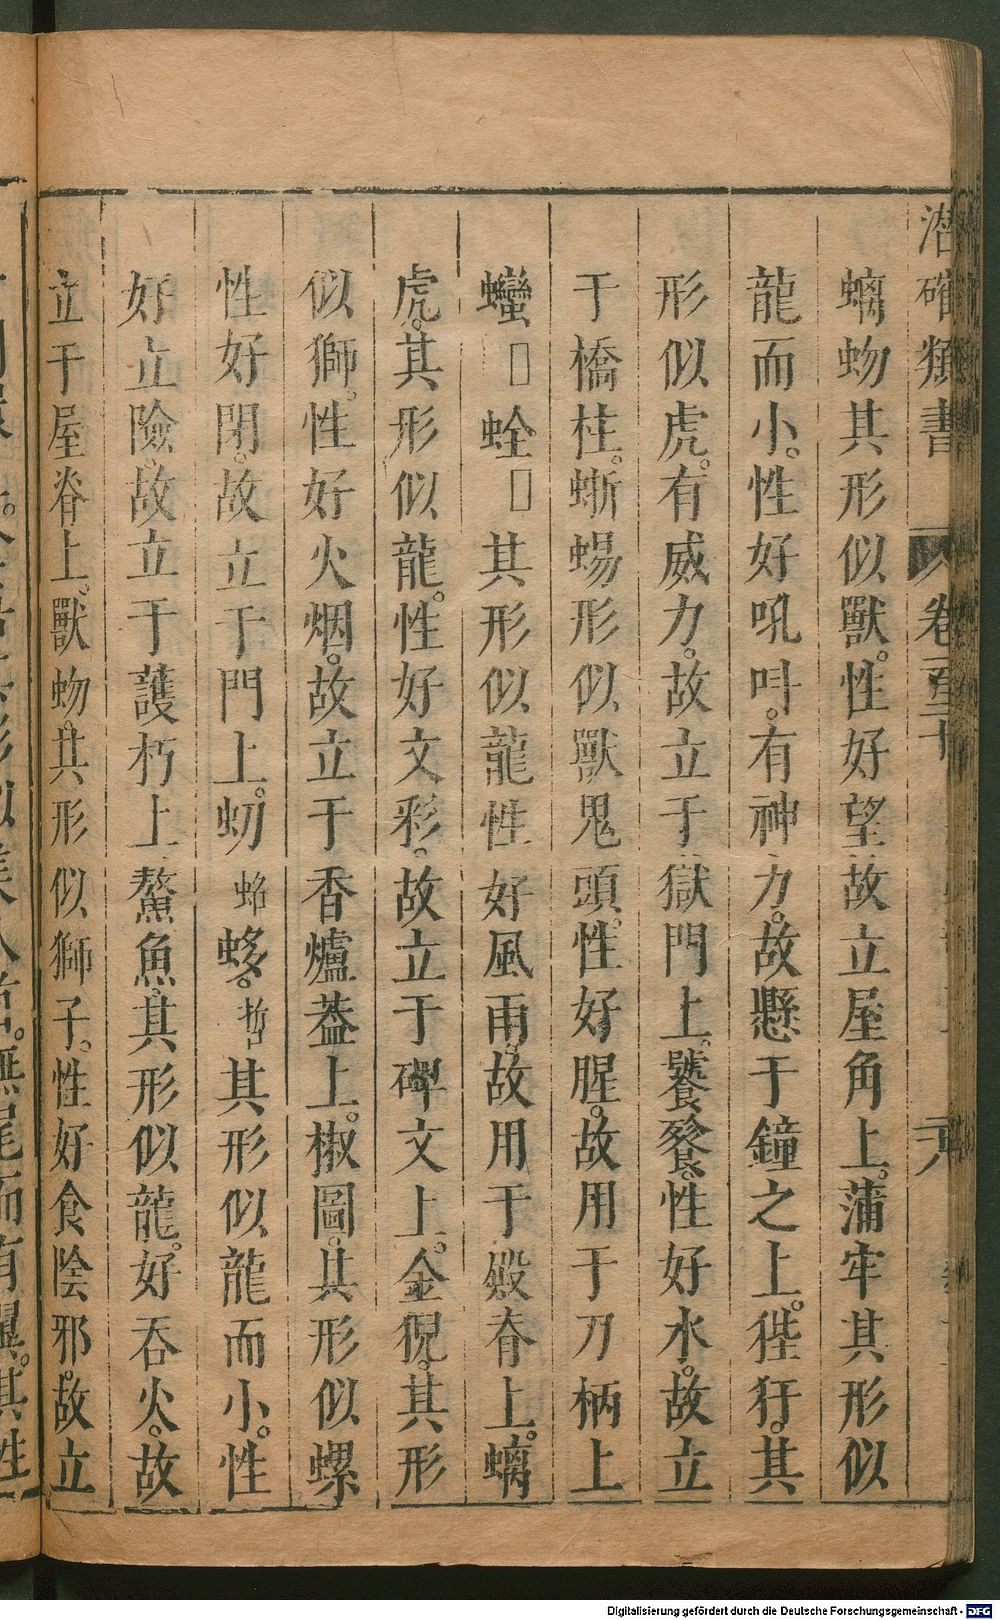 潛確類書 卷一百十
螭吻其形似獸。性好望故立屋角上。蒲牢其形似
龍而小。性好吼呌。有神力。故懸于鐘之上。狴犴。其
形似虎。有威力。故立于獄門上。饕餮。性好水。故立
于橋柱。蜥蜴形似獸鬼頭。性好腥。故用于刀柄上
蠻𧈢蛫其形似龍性好風雨。故用于殿脊上。螭
虎。其形似龍。性好文彩。故立于碑文上。金猊。其形
似獅。性好火烟。故立于香爐葢上。椒圖。其形似螺
性好閉。故立于門上。虭蛥。其形似龍而小。性
好立險。故立于護朽上鰲魚。其形似龍。好吞火。故
立于屋脊上。獸吻。其形似獅子。性好食陰邪。故立
Digitalisierung gefördert durch die Deutsche Forschungsgemeinschaft - DFG